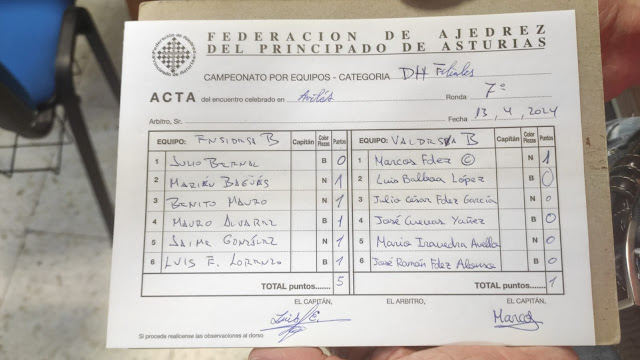 FEDERACION DE AJEDREZ
DEL PRINCIPADO DE ASTURIAS
CAMPEONATO POR EQUIPOS - CATEGORIA DH Filiales
ACTA del encuentro celebrado en Avilés Ronda 7ª
Arbitro, Sr. Fecha 13, 4, 2024
EQUIPO: ENSIDESA B Capitán Color Piezas Puntos EQUIPO: VALDESVA B Capitán Color Piezas Puntos
1 JULIO BERNAL B 0 1 Marcos Fdez © N 1
2 MARIÉN BAGUÉS N 1 2 Luis Balboa López B 0
3 BENITO MAURO N 1 3 Julio César Fdez García N 0
4 MAURO ALVAREZ B 1 4 José Cuevas Yañez B 0
5 JAIME GONZÁLEZ N 1 5 Mario Iravedra N 0
6 LUIS E. LORENZO B 1 6 José Ramón Fdez Alonso B 0
TOTAL puntos....... 5 TOTAL puntos....... 1
EL CAPITÁN, EL ARBITRO, EL CAPITÁN,
Luis E. Marcos
Si procede realicense las observaciones al dorso